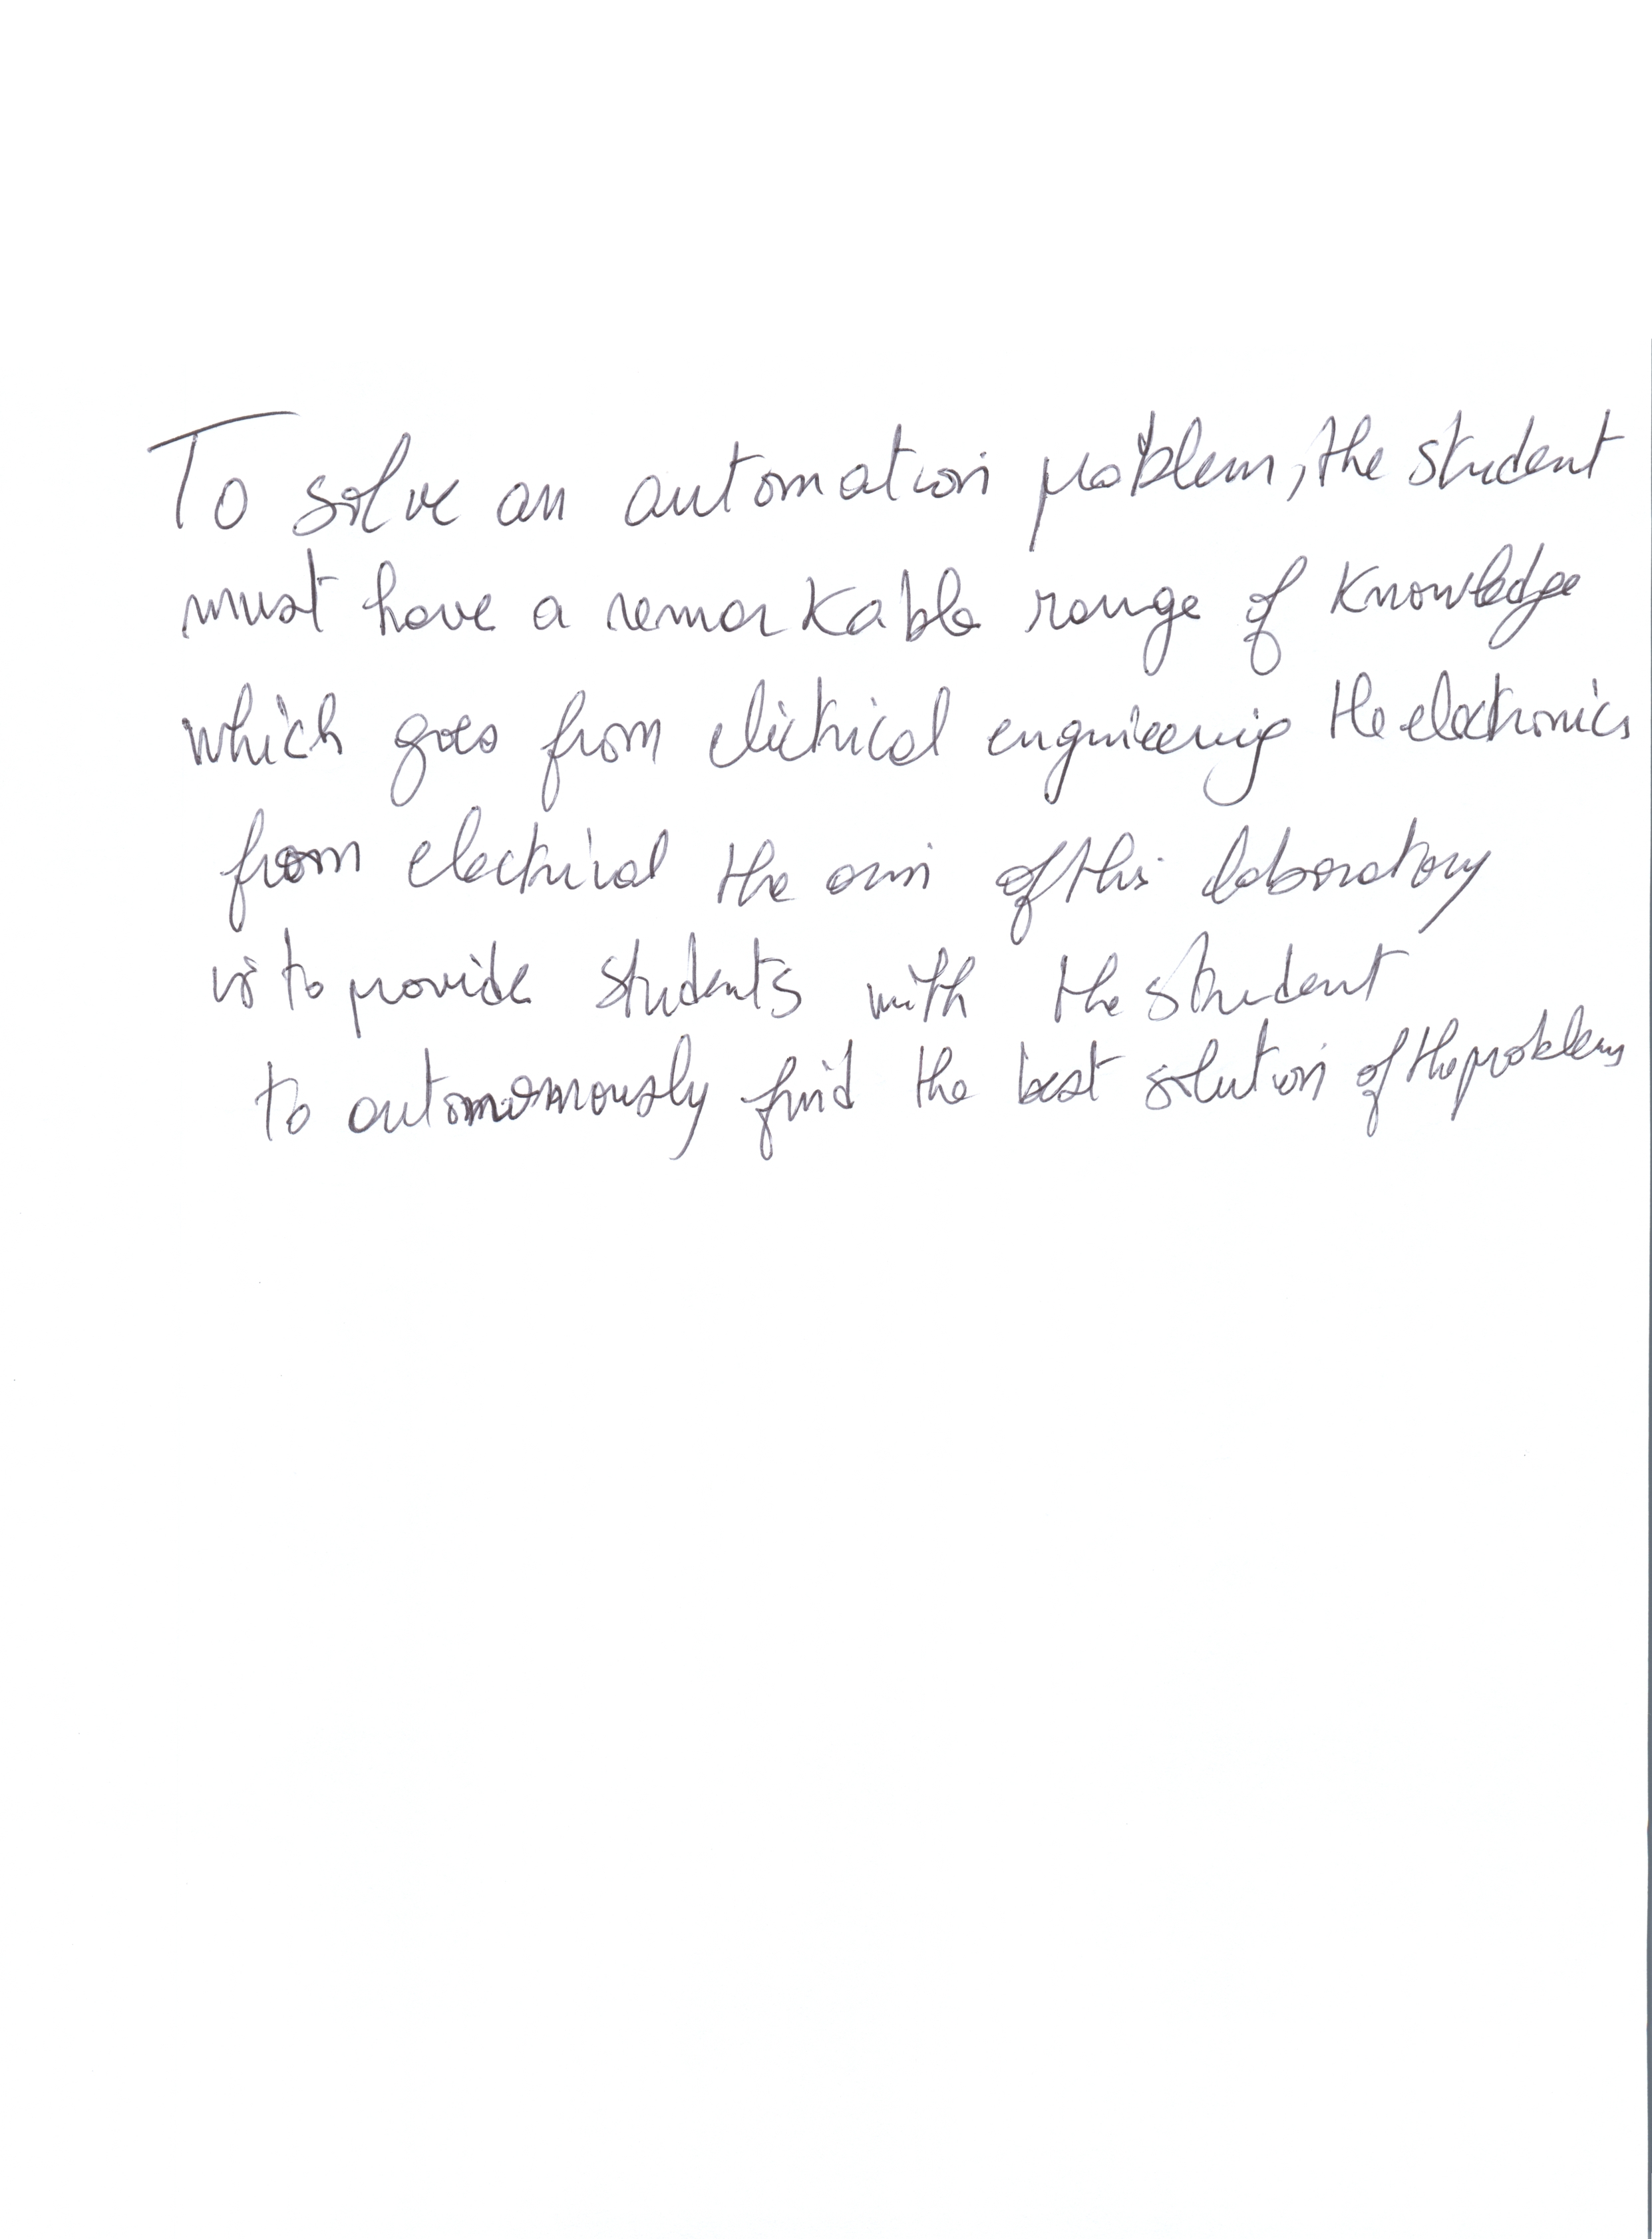 To solve an automation problem, the student
must have a remarkable range of knowledge
which goes from electrical engineering the electronics
from electrical the aim of this laboratory
is to provide students with the student
to autonomously find the best solution of the problems